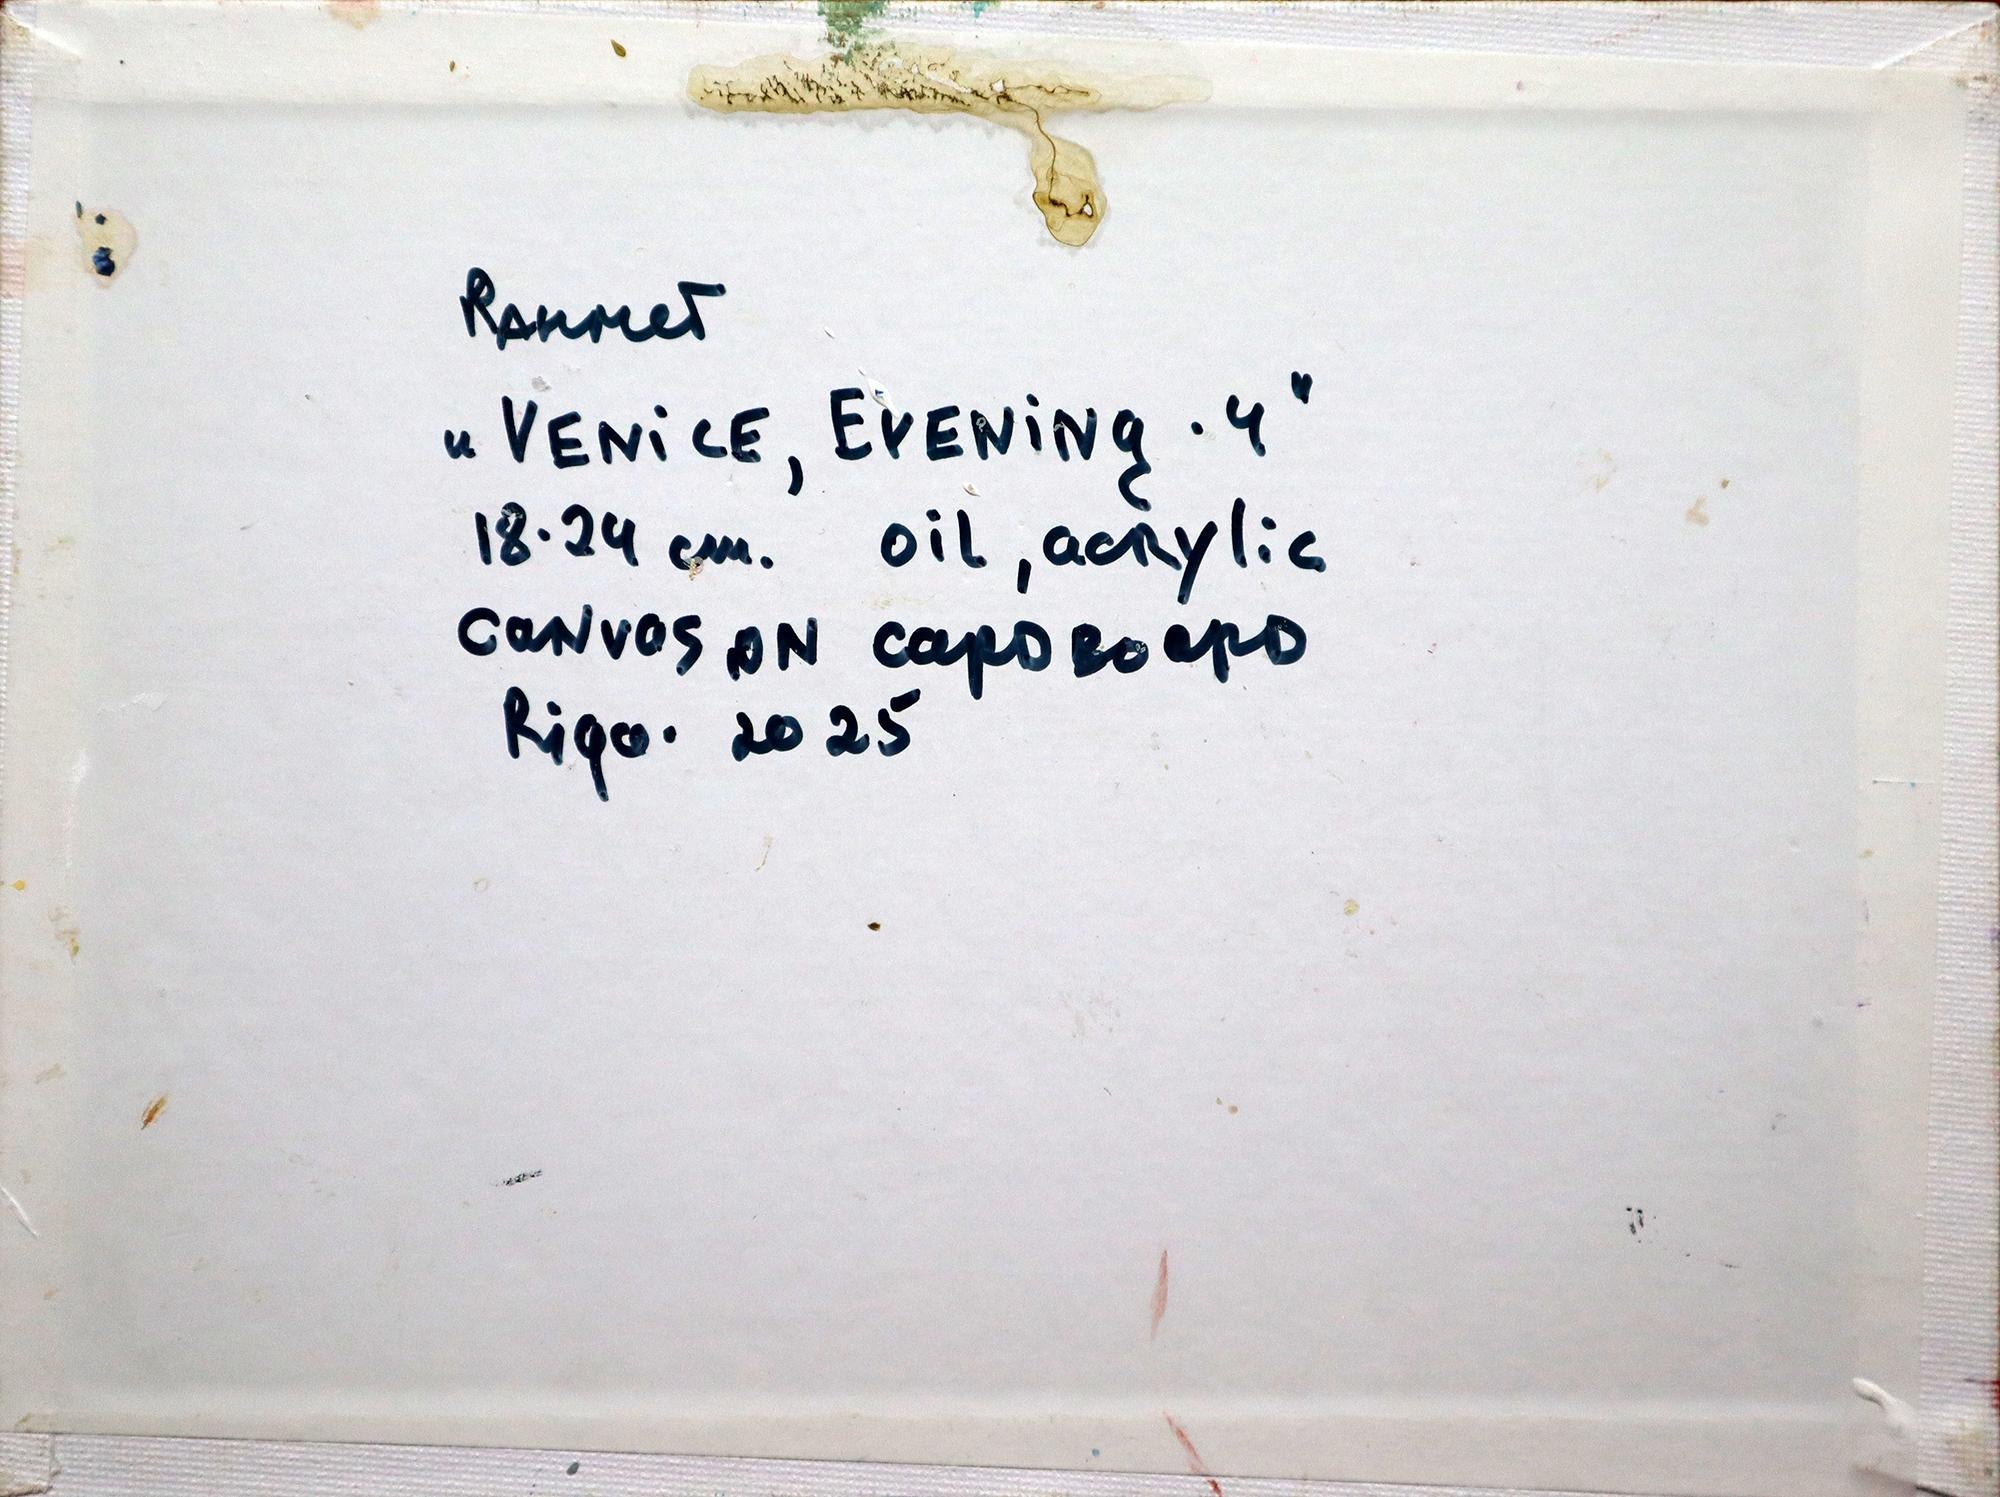 Rahmet
„VENiCE, EVENiNg. 4"
18.24 cm. oil, acrylic
canvas on cardboard
Riga. 2025